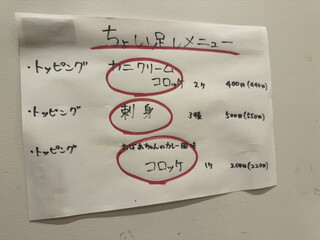 ちょい足しメニュー
・トッピング カニクリーム
コロッケ 2ヶ 400円(440円)
・トッピング 刺身 3種 500円(550円)
・トッピング おばあちゃんのカレー風味
コロッケ 1ヶ 200円(220円)